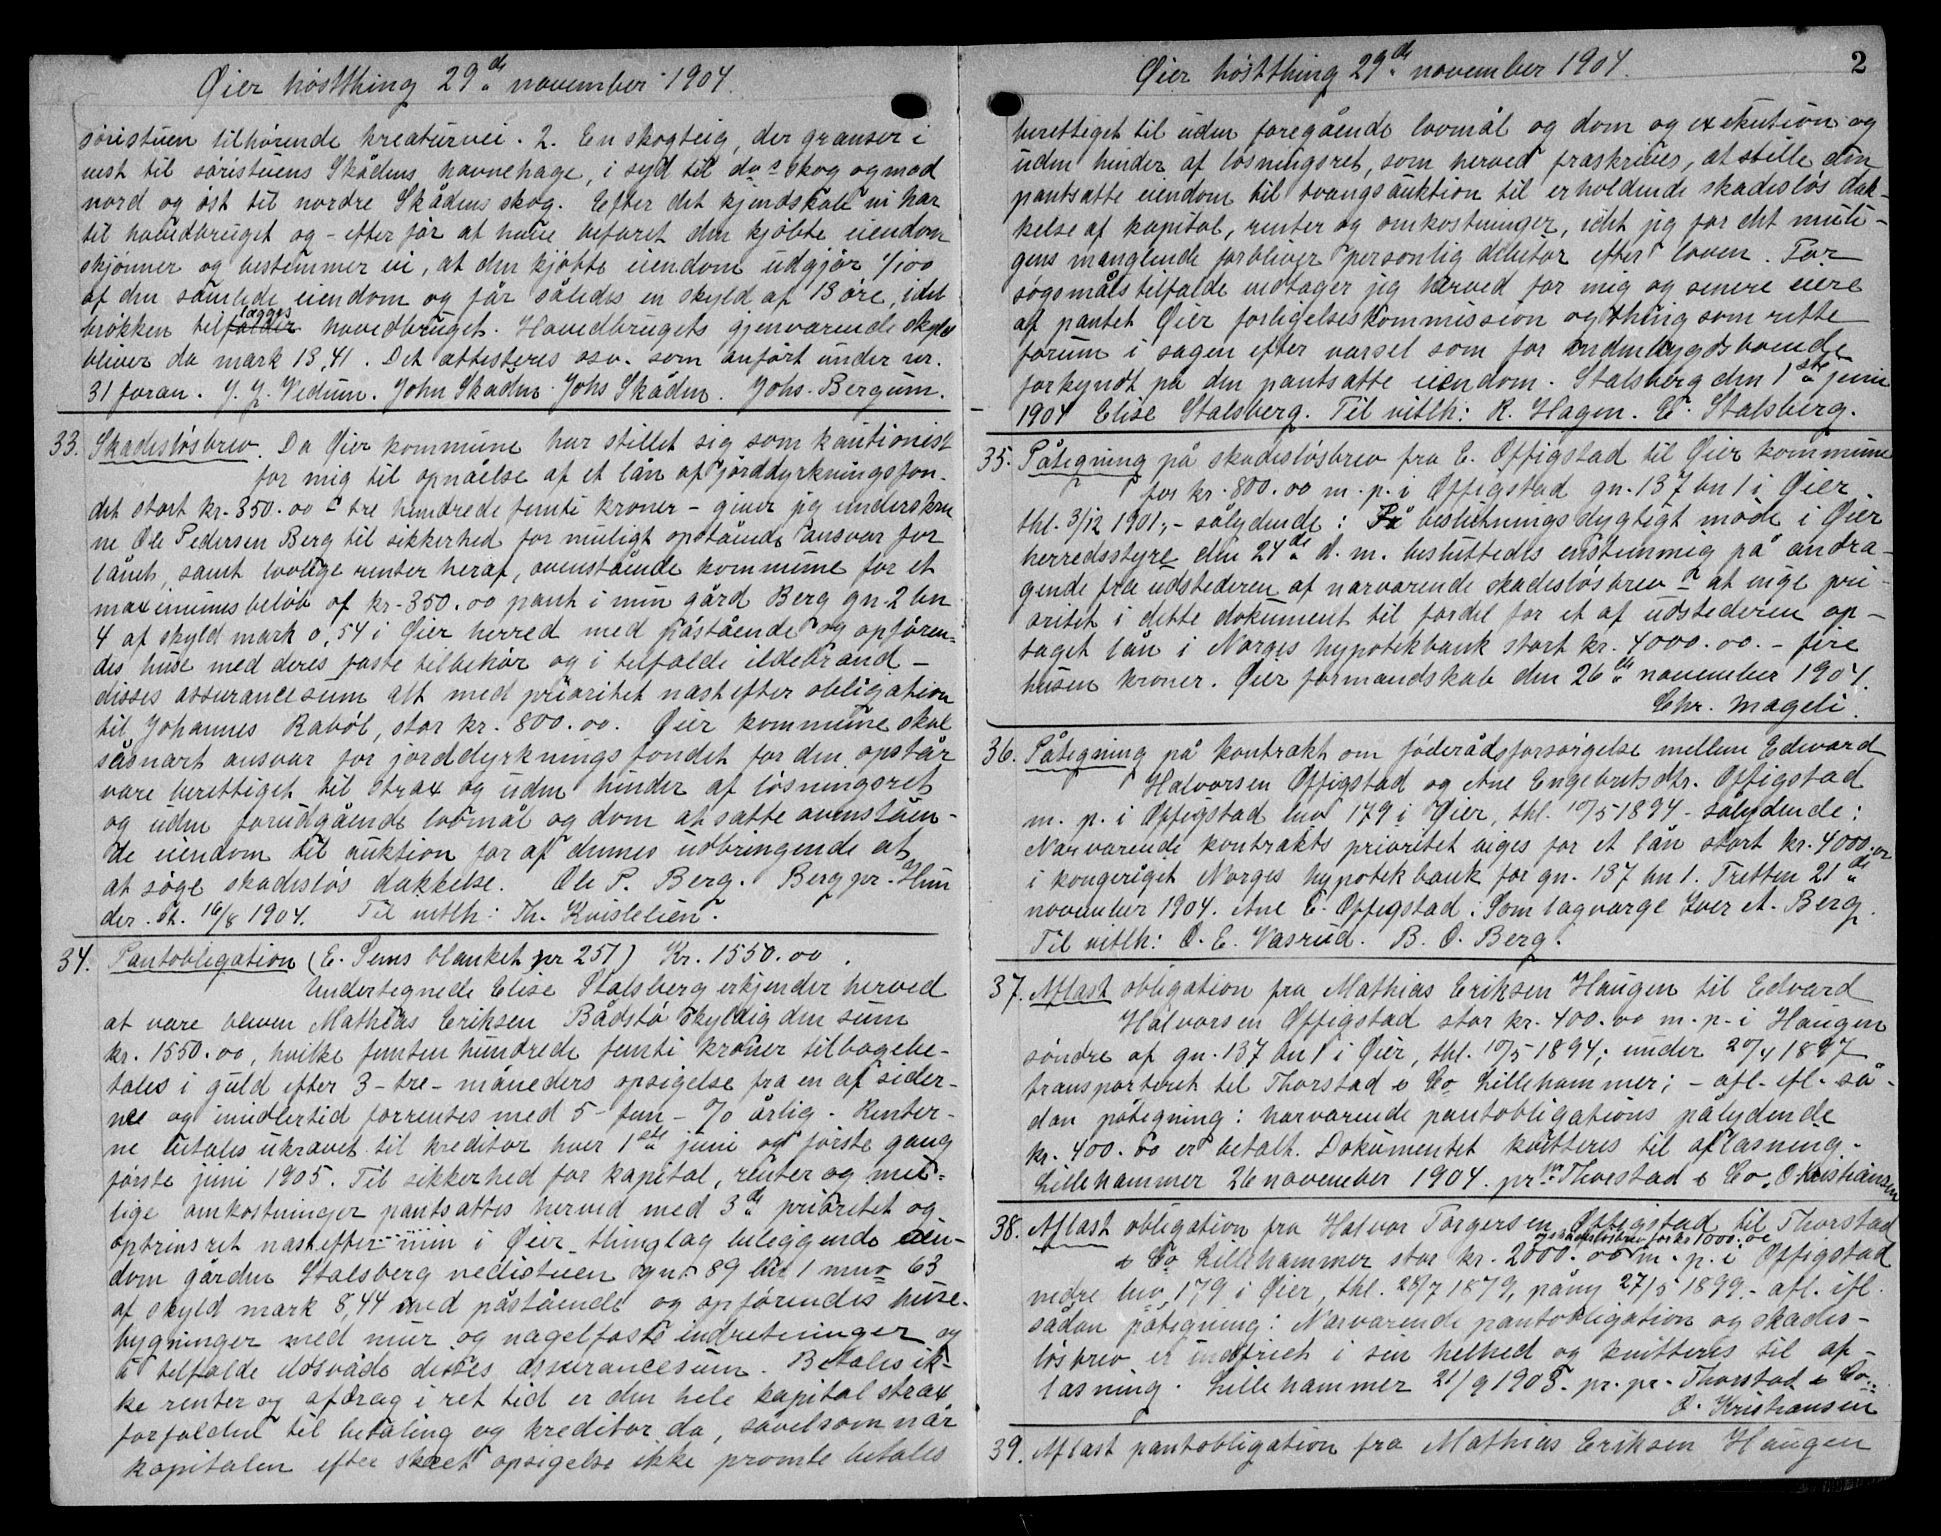 Øier høstthing 29de november 1904.
søristuen tilhørende kreaturvei. 2. En skogteig, der grænser i
vest til søristuens Skådens havnehage, i syd til do skog og mod
nord og øst til nordre Skådens skog. Efter det kjendskab vi har
til hovedbruget og - efter før at have befaret den kjøbte eiendom
skjønner og bestemmer vi, at den kjøbte eiendom udgjør 1/100
af den samlede eiendom og får således en skyld af 13 øre, idet
brøkken tilfalder lægges hovedbruget. Hovedbrugets gjenværende skyld
bliver da mark 13,41. Det attesteres osv. som anført under nr.
31 foran. J. J. Vedum. John Skåden. Johs Skåden. Johs. Bergum.
33. Skadesløsbrev. Da Øier kommune har stillet sig som kautionist
for mig til opnåelse af et lån af jorddyrkningsfon-
det stort kr. 350.00 - tre hundrede femti kroner - giver jeg underskrev
ne Ole Pedersen Berg til sikkerhed for muligt opstående ansvar for
lånet, samt lovlige renter heraf, ovenstående kommune for et
maximumsbeløb af kr. 350.00 pant i min gård Berg gn. 2 bn
4 af skyld mark 0,54 i Øier herred med påstående og opføren-
des huse med deres faste tilbehør og i tilfælde ildebrand -
disses assurancesum alt med prioritet næst efter obligation
til Johannes Rabøl, stor kr. 800.00. Øier kommune skal
såsnart ansvar for jorddyrkningsfondet for den opstår
være berettiget til strax og uden hinder af løsningsret
og uden forudgående lovmål og dom at sætte ovenståen-
de eiendom til auktion for af dennes udbringende at
at søge skadesløs dækkelse. Ole P. Berg. Berg pr. Hun
der st. 16/8 1904. Til vitlh: Th. Kvislelien.
34. Pantobligation (E. Sems blanket nr 251) Kr. 1550.00.
Undertegnede Elise Stalsberg erkjender herved
at være bleven Mathias Eriksen Bådstø skyldig den sum
kr. 1550.00, hvilke femten hundrede femti kroner tilbagebe-
tales i guld efter 3 - tre - måneders opsigelse fra en af sider-
nee og imidlertid forrentes med 5 - fem - % årlig. Renter-
ne betales ukrævet til kreditor hver 1ste juni og første gang
første juni 1905. Til sikkerhed for kapital, renter og mu-
lige omkostninger pantsættes herved med 3de prioritet og
optrinsret næstefter min i Øier thinglag beliggende eien-
dom gården Stalsberg nedistuen gnr 89 bn 1 mno 63
af skyld mark 8,44 med påstående og opførendes huse-
bygninger med mur og nagelfaste indretninger og
i tilfælde ildsvåde disses assurancesum. Betales ik-
ke renter og afdrag i ret tid er den hele kapital strax
forfalden til betaling og kreditor da, såvelsom når
kapitalen efter skeet opsigelse ikke promte betales
Øier høstthing 29de november 1904.
2
berettiget til uden foregående lovmål og dom og exekution og
uden hinder af løsningsret, som herved fraskrives, at stelle den
pantsatte eiendom til tvangsauktion til erholdende skadesløs dæk-
kelse af kapital, renter og omkostninger, idet jeg for det muli-
gens manglende forbliver personlig debitor efter loven. For
søgsmåls tilfælde vedtager jeg herved for mig og senere eiere
af pantet Øier forligelseskommission og thing som rette
forum i sagen efter varsel som for indenbygdsboende
forkyndt på den pantsatte eiendom. Stalsberg den 1ste juni
1904 Elise Stalsberg. Til vitlh: R. Hagen. E. Stalsberg.
35. Påtegning på skadesløsbrev fra E. Offigstad til Øier kommune
for kr. 800.00 m. p. i Offigstad gn. 137 bn 1 i Øier.
thl. 3/12 1901, - sålydende: På beslutningsdygtigt møde i Øier
herredsstyre den 24de d. m. besluttedes enstemmig på andra-
gende fra udstederen af nærværende skadesløsbrev at vige pri-
oritet i dette dokument til fordel for et af udstederen op-
taget lån i Norges hypotekbank stort kr. 4000.00. - fire
tusen kroner. Øier formandskab den 26de november 1904.
Chr. Mageli.
36. Påtegning på kontrakt om føderådsforsørgelse mellem Edward
Halvorsen Offigstad og Ane Engebretsdtr. Offigstad
m. p. i Offigstad lno 179 i Øier, thl. 10/5 1894 - sålydende:
Nærværende kontrakts prioritet viges for et lån stort kr. 4000.00
i kongeriget Norges hypotekbank for gn. 137 bn 1. Tretten 21de
november 1904. Ane E. Offigstad. Som lagværge Iver A. Berg.
Til vitlh: O. E. Vasrud. B. O. Berg.
37. Aflæst obligation fra Mathias Eriksen Haugen til Edvard
Halvorsen Offigstad stor kr. 400.00 m. p. i Haugen
søndre af gn. 137 bn 1 i Øier, thl. 10/5 1894; under 20/4 1897
transporteret til Thorstad & Co Lillehammer; - afl. efl. så-
dan påtegning: nærværende pantobligations pålydende
kr. 400.00 er betalt. Dokumentet kvitteres til aflæsning.
Lillehammer 26 november 1904. pr. pr. Thorstad & Co. O Kristiansen
38. Aflæst obligation fra Halvor Torgersen Offigstad til Thorstad
& Co Lillehammer stor kr. 2000.00 og skadesløsbrev for kr 1000.00 m. p. i Offigstad
nedre lno 179 i Øier, thl. 28/7 1879, påny 27/5 1899. - afl. efl.
sådan påtegning: Nærværende pantobligation og skades-
løsbrev er indfriet i sin helhed og kvitteres til af-
læsning. Lillehammer 21/9 1905. pr. pr. Thorstad & Co.
O. Kristiansen
39. Aflæst pantobligation fra Mathias Eriksen Haugen